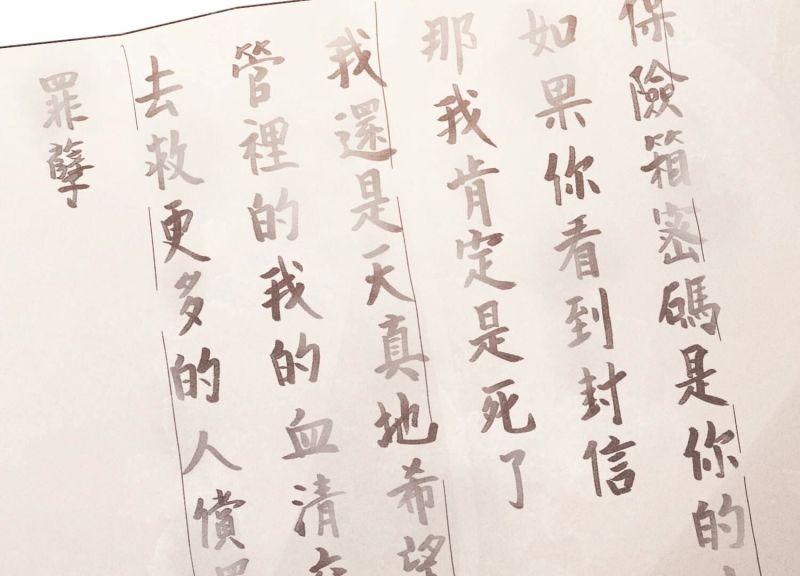 保險箱密碼是你的
如果你看到封信
那我肯定是死了
我還是天真地希望
管裡的我的血清
去救更多的人償
罪孽